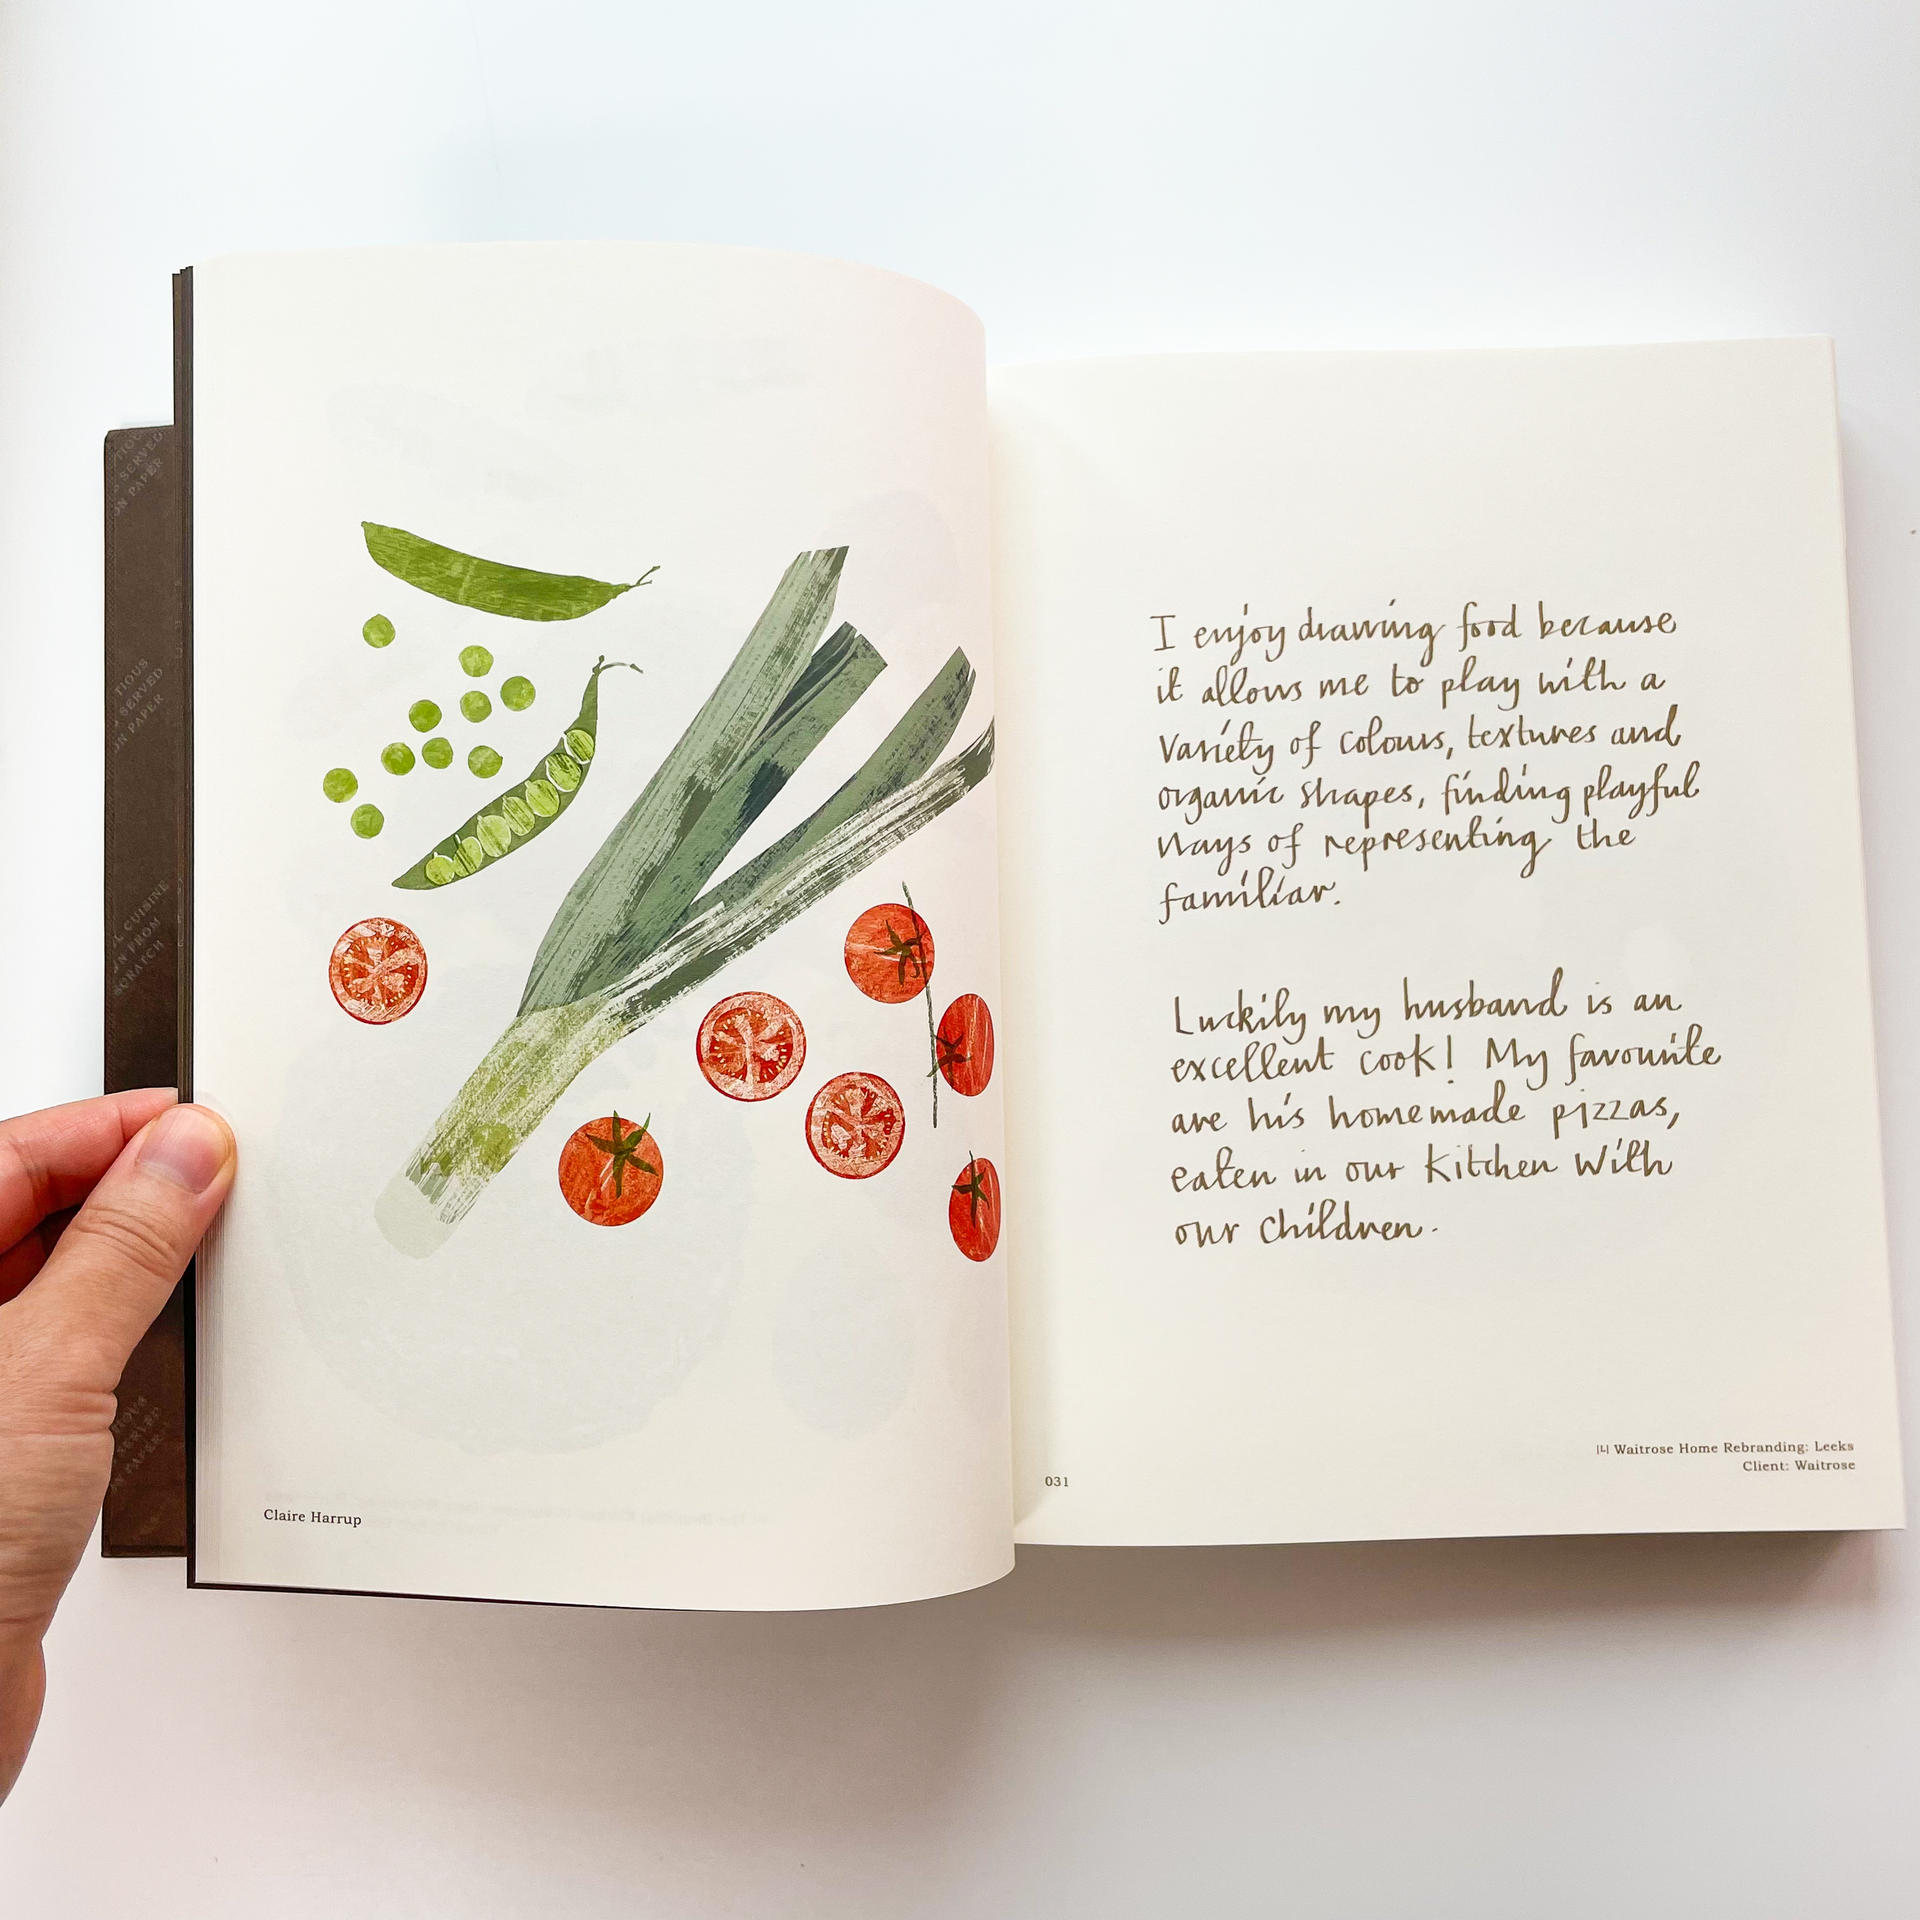 TIOUS
SERVED
ON PAPER
TIOUS
SERVED
ON PAPER
CUISINE
FROM
SCRATCH
SERVED
PAPER
Claire Harrup
I enjoy drawing food because
it allows me to play with a
variety of colours, textures and
organic shapes, finding playful
ways of representing the
familiar.
Luckily my husband is an
excellent cook! My favourite
are his homemade pizzas,
eaten in our kitchen with
our children.
031
Waitrose Home Rebranding: Leeks
Client: Waitrose